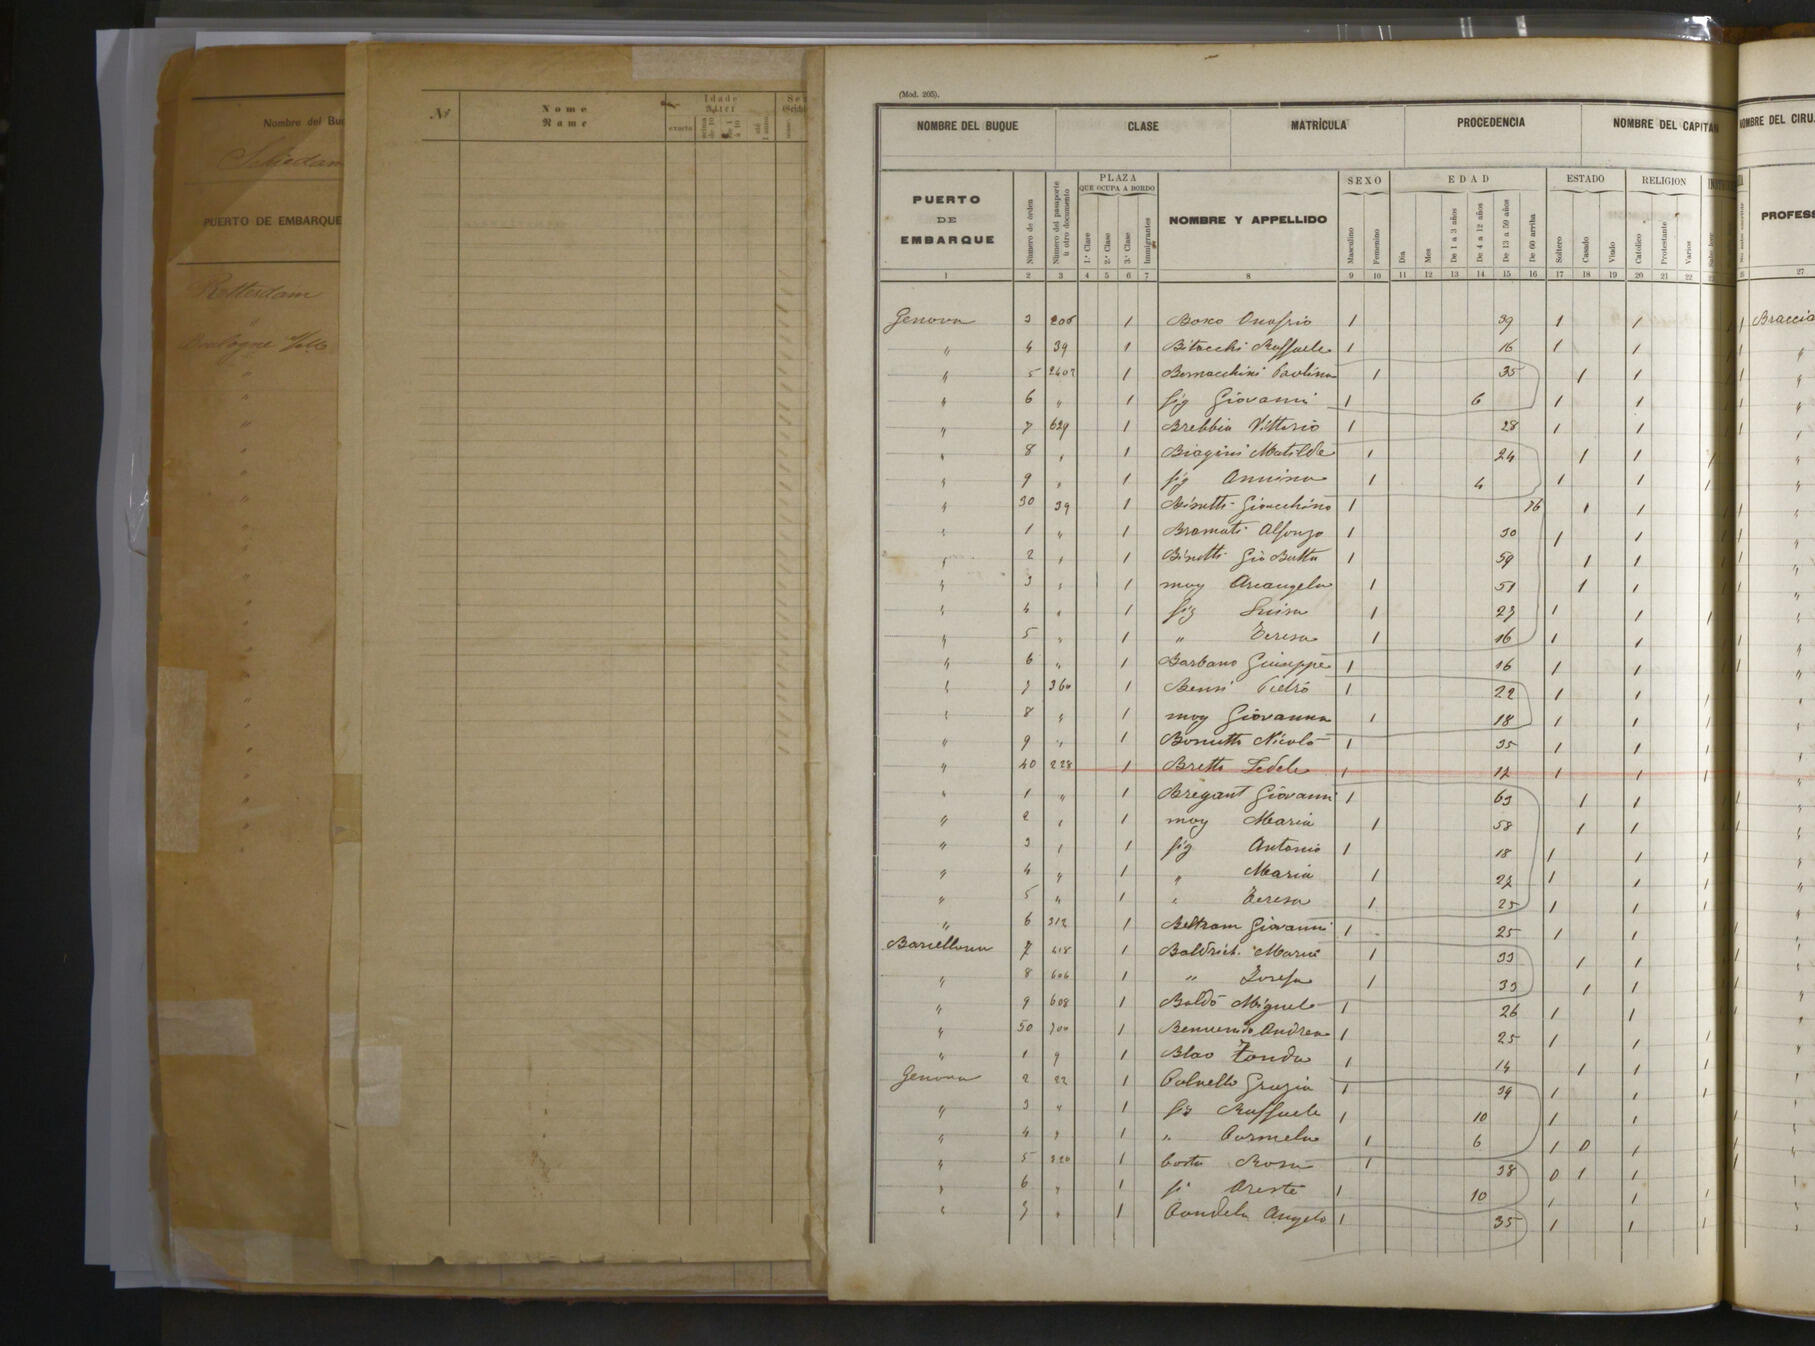 Nombre del Buq
Schiedam
PUERTO DE EMBARQUE
Rotterdam
Boulogne
Nº
Nome
Name
Idade
Alter
exacta
(Mod. 205).
NOMBRE DEL BUQUE CLASE MATRÍCULA PROCEDENCIA NOMBRE DEL CAPITÁN NOMBRE DEL CIRUJ
PUERTO
DE
EMBARQUE
Número de órden
Número del pasaporte
ú otro documento
PLAZA
QUE OCUPA A BORDO
1.ª Clase
2.ª Clase
3.ª Clase
Inmigrantes
NOMBRE Y APPELLIDO
SEXO
Masculino
Femenino
EDAD
Dia
Mes
De 1 a 3 años
De 4 a 12 años
De 13 a 59 años
De 60 arriba
ESTADO
Soltero
Casado
Viudo
RELIGION
Católico
Protestante
Varios
PROFES
1 2 3 4 5 6 7 8 9 10 11 12 13 14 15 16 17 18 19 20 21 22 27
Genova 3 206 1 Boxo Onofrio 1 39 1 1 1 Braccia
" 4 39 1 Bitocchi Raffaele 1 16 1 1 1 "
" 5 2402 1 Bernacchini Paolina 1 35 1 1 1 "
" 6 " 1 fig Giovanni 1 6 1 1 1 "
" 7 629 1 Brebbia Vittorio 1 28 1 1 1
" 8 " 1 Biagini Matilde 1 24 1 1 1 "
" 9 " 1 fig Annina 1 4 1 1 1 "
" 30 39 1 Binetti Gioacchino 1 76 1 1 1 "
" 1 " 1 Bramati Alfonzo 1 30 1 1 1 "
" 2 " 1 Binetti Gio Batta 1 59 1 1 1 "
" 3 " 1 mog Arcangela 1 51 1 1 1 "
" 4 " 1 fig Luisa 1 27 1 1 1 "
" 5 " 1 " Teresa 1 16 1 1 1 "
" 6 " 1 Barbano Giuseppe 1 16 1 1 1 "
" 7 360 1 Bensi Pietro 1 22 1 1 1 "
" 8 " 1 mog Giovanna 1 18 1 1 1 "
" 9 " 1 Bonutti Nicolo 1 35 1 1 1 "
" 40 228 1 Bretti Fedele 1 12 1 1 1 "
" 1 " 1 Bregant Giovanni 1 63 1 1 1 "
" 2 " 1 mog Maria 1 58 1 1 1 "
" 3 " 1 fig Antonio 1 18 1 1 1 "
" 4 " 1 " Maria 1 27 1 1 1 "
" 5 " 1 " Teresa 1 25 1 1 1 "
" 6 312 1 Beltram Giovanni 1 25 1 1 1 "
Barcellona 7 418 1 Baldrich Maria 1 33 1 1 1 "
" 8 606 1 " Josefa 1 33 1 1 1 "
" 9 608 1 Baldó Miguel 1 26 1 1 1 "
" 50 700 1 Benvenuto Andrea 1 25 1 1 1 "
" 1 9 1 Blao 1 14 1 1 1 "
Genova 2 22 1 Grazia 1 39 1 1 1 "
" 3 " 1 fig Raffaele 1 10 1 1 1 "
" 4 " 1 " Carmela 1 6 1 0 1 1 "
" 5 320 1 Costa Rosa 1 38 0 1 1 1 "
" 6 " 1 fi Oreste 1 10 1 1 1 "
" 7 " 1 Candela Angelo 1 35 1 1 1 "